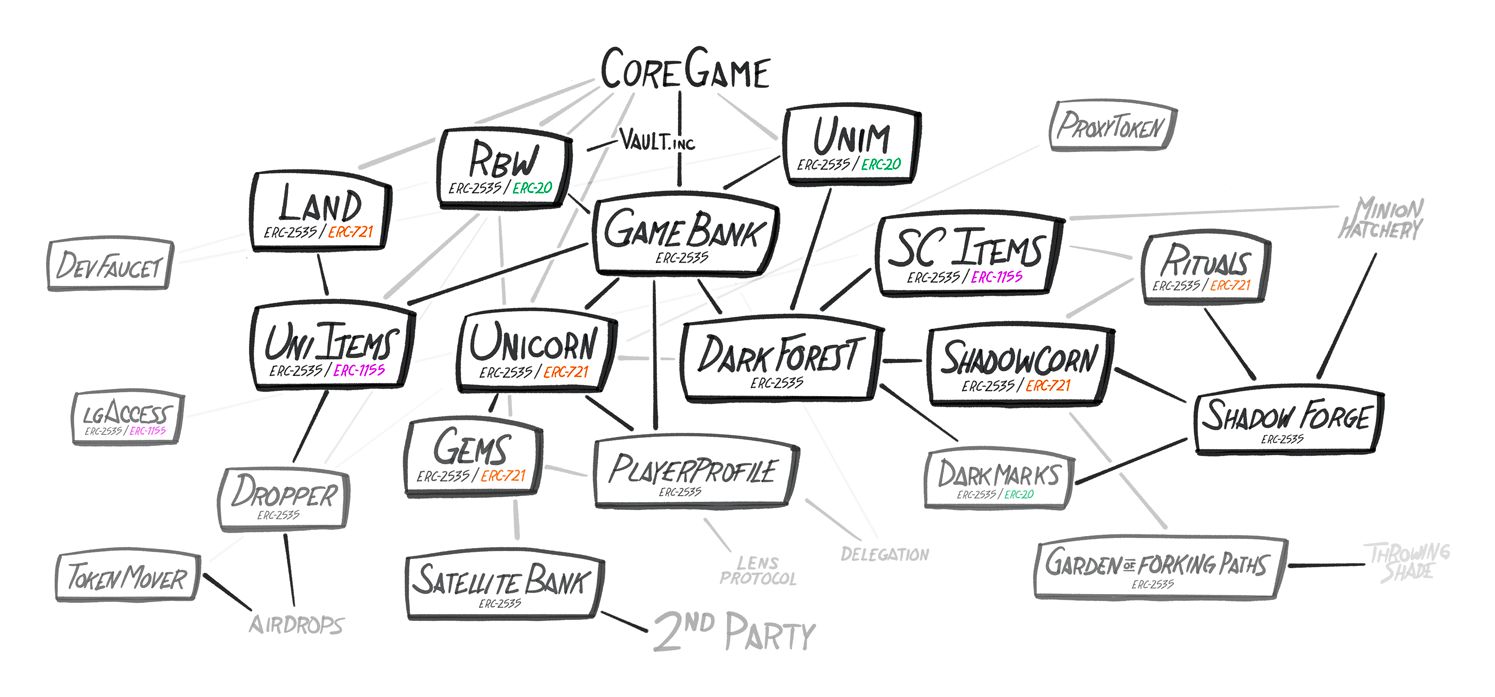 CoreGame
Vault.inc
RBW
ERC-2535 / ERC-20
UNIM
ERC-2535 / ERC-20
ProxyToken
LAND
ERC-2535 / ERC-721
GameBank
ERC-2535
SC Items
ERC-2535 / ERC-1155
Minion
Hatchery
Rituals
ERC-2535 / ERC-721
DevFaucet
UniItems
ERC-2535 / ERC-1155
Unicorn
ERC-2535 / ERC-721
DarkForest
ERC-2535
ShadowCorn
ERC-2535 / ERC-721
lgAccess
ERC-2535 / ERC-1155
Shadow Forge
ERC-2535
Gems
ERC-2535 / ERC-721
PlayerProfile
ERC-2535
DarkMarks
ERC-2535 / ERC-20
Dropper
ERC-2535
Token Mover
Satellite Bank
ERC-2535
Lens
Protocol
Delegation
Garden of Forking Paths
ERC-2535
Throwing
Shade
Airdrops
2nd Party